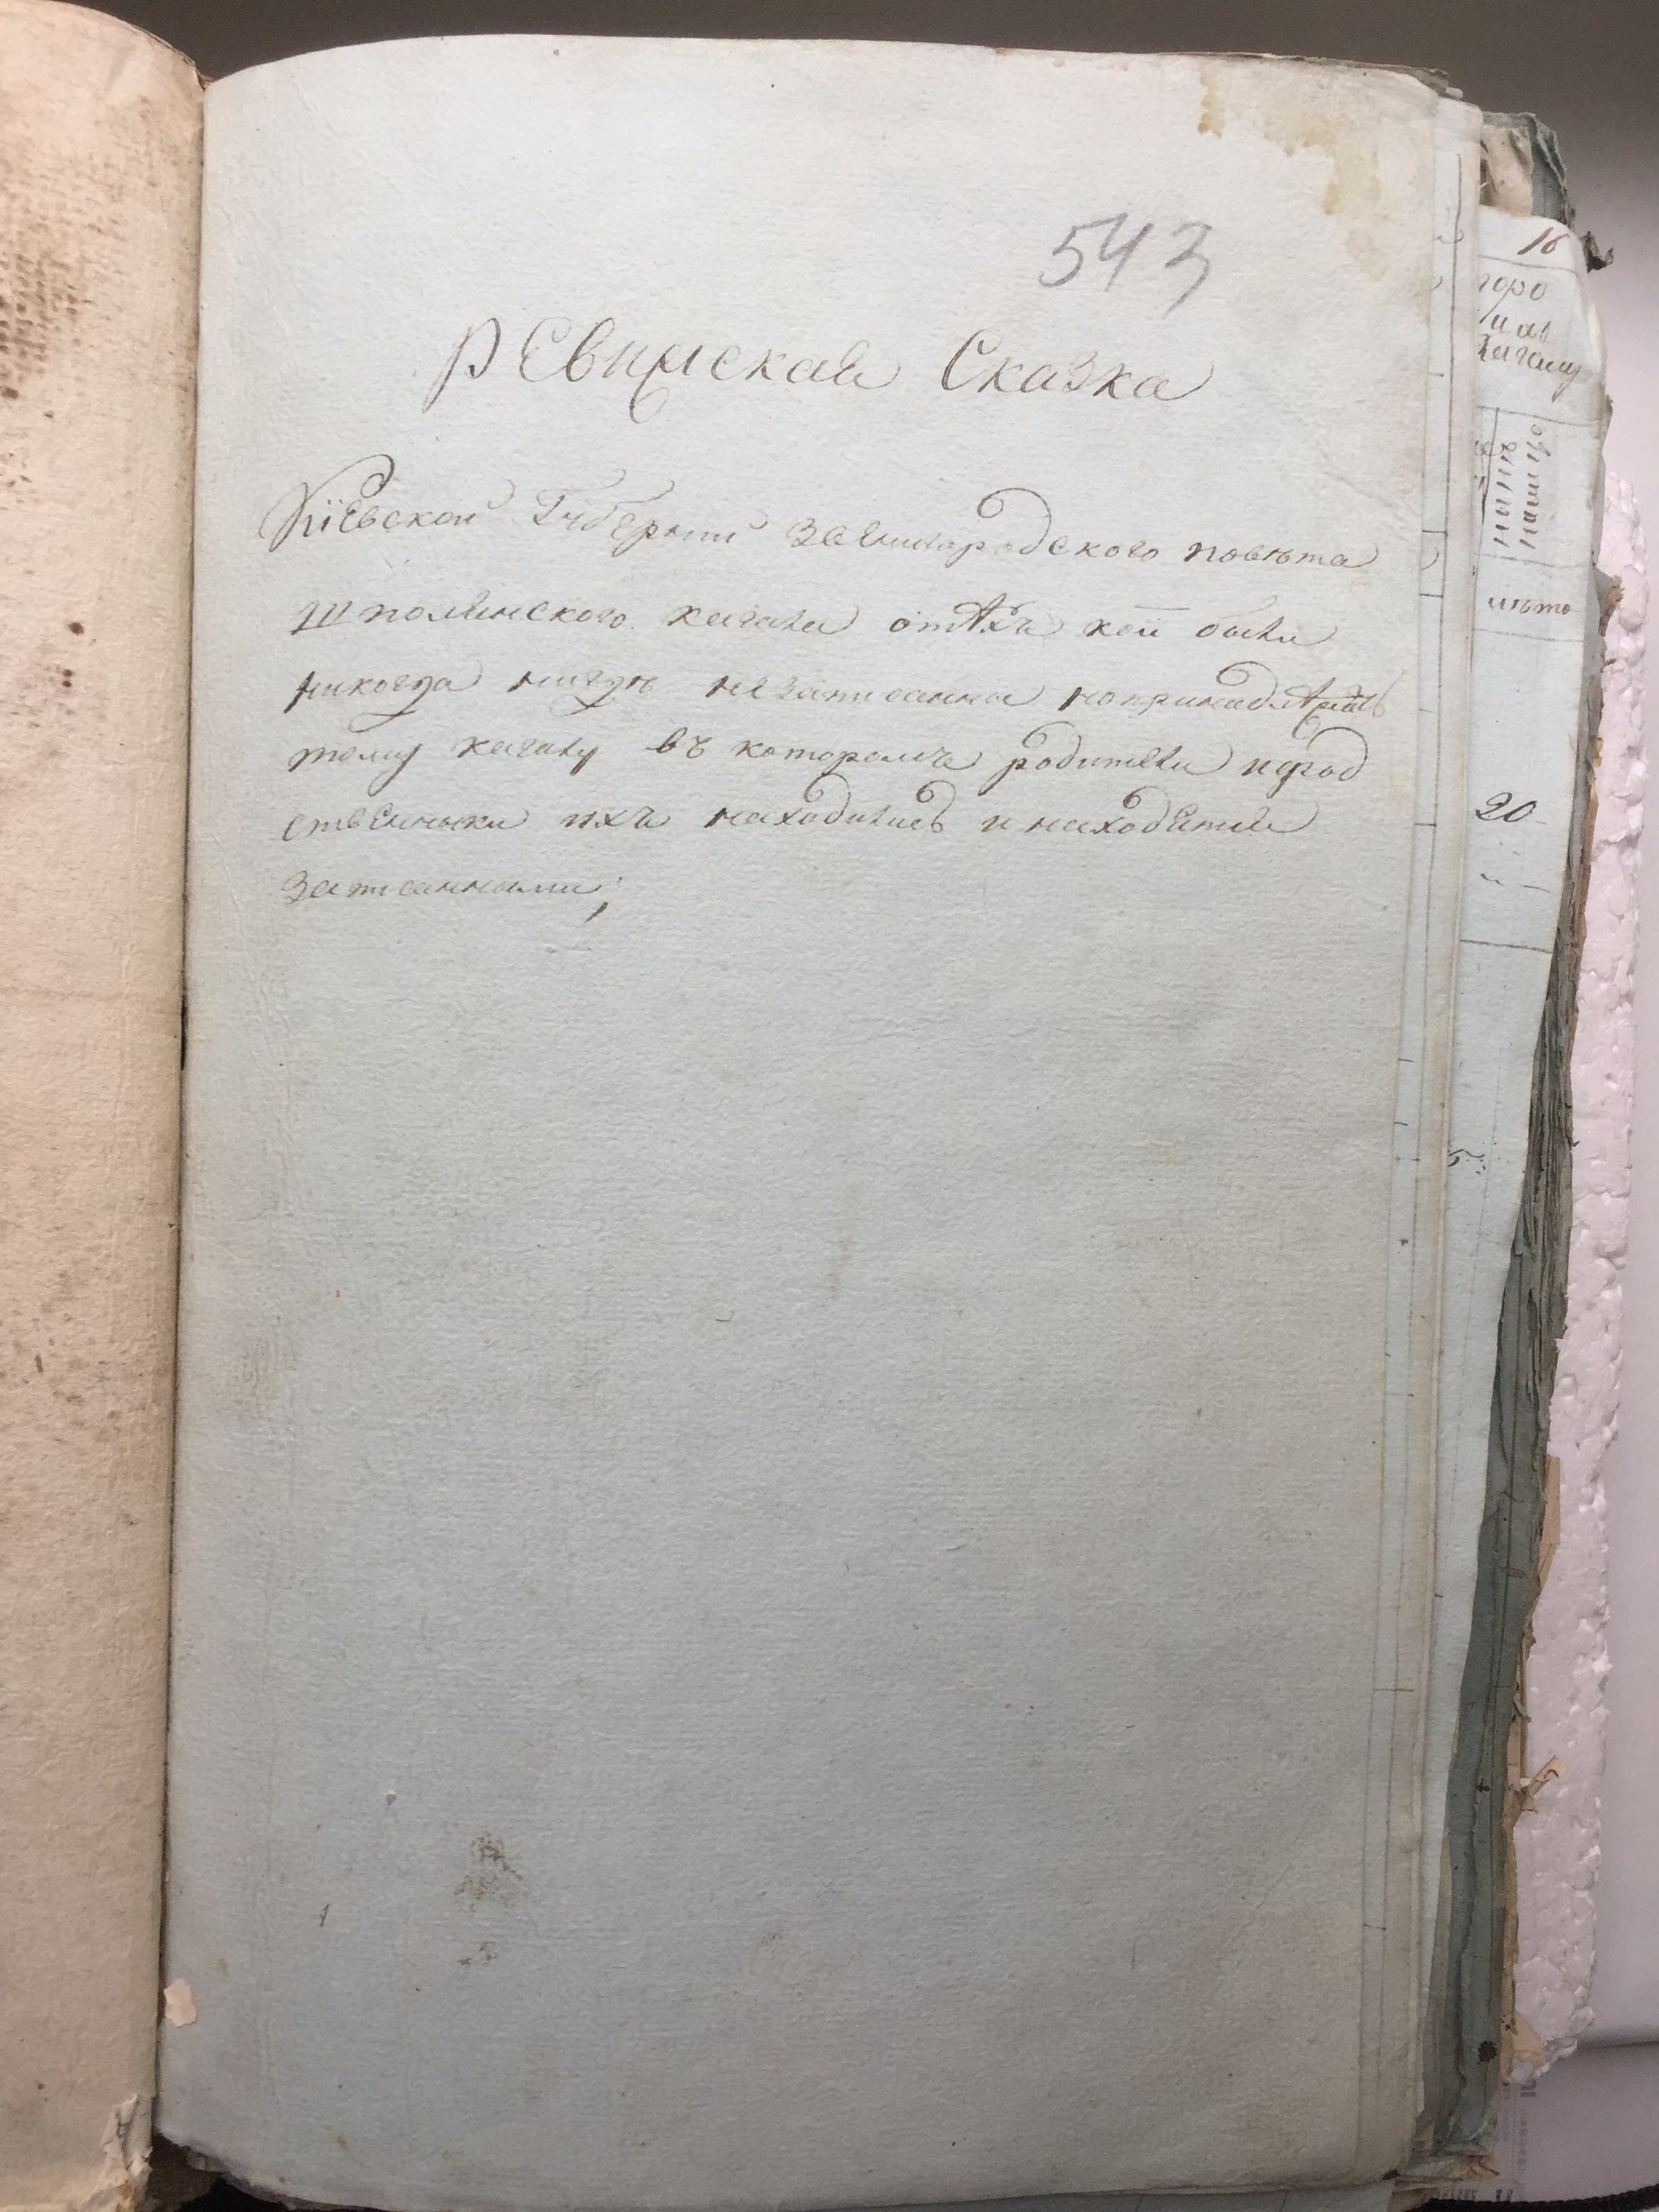 543
РЕвизская Сказка
КіЕвской Губернии Звенигородского повѣта
Шполянского кагала отѣхъ кои были
никогда нигдѣ незаписанны нопринадлѣжатъ
тому кагалу въ которомъ родители ирод
ствЕнники ихъ находились и находЕтся
записанными;
16
торо
кагалу
20